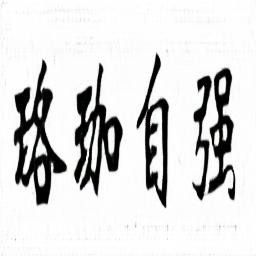 珞珈自强